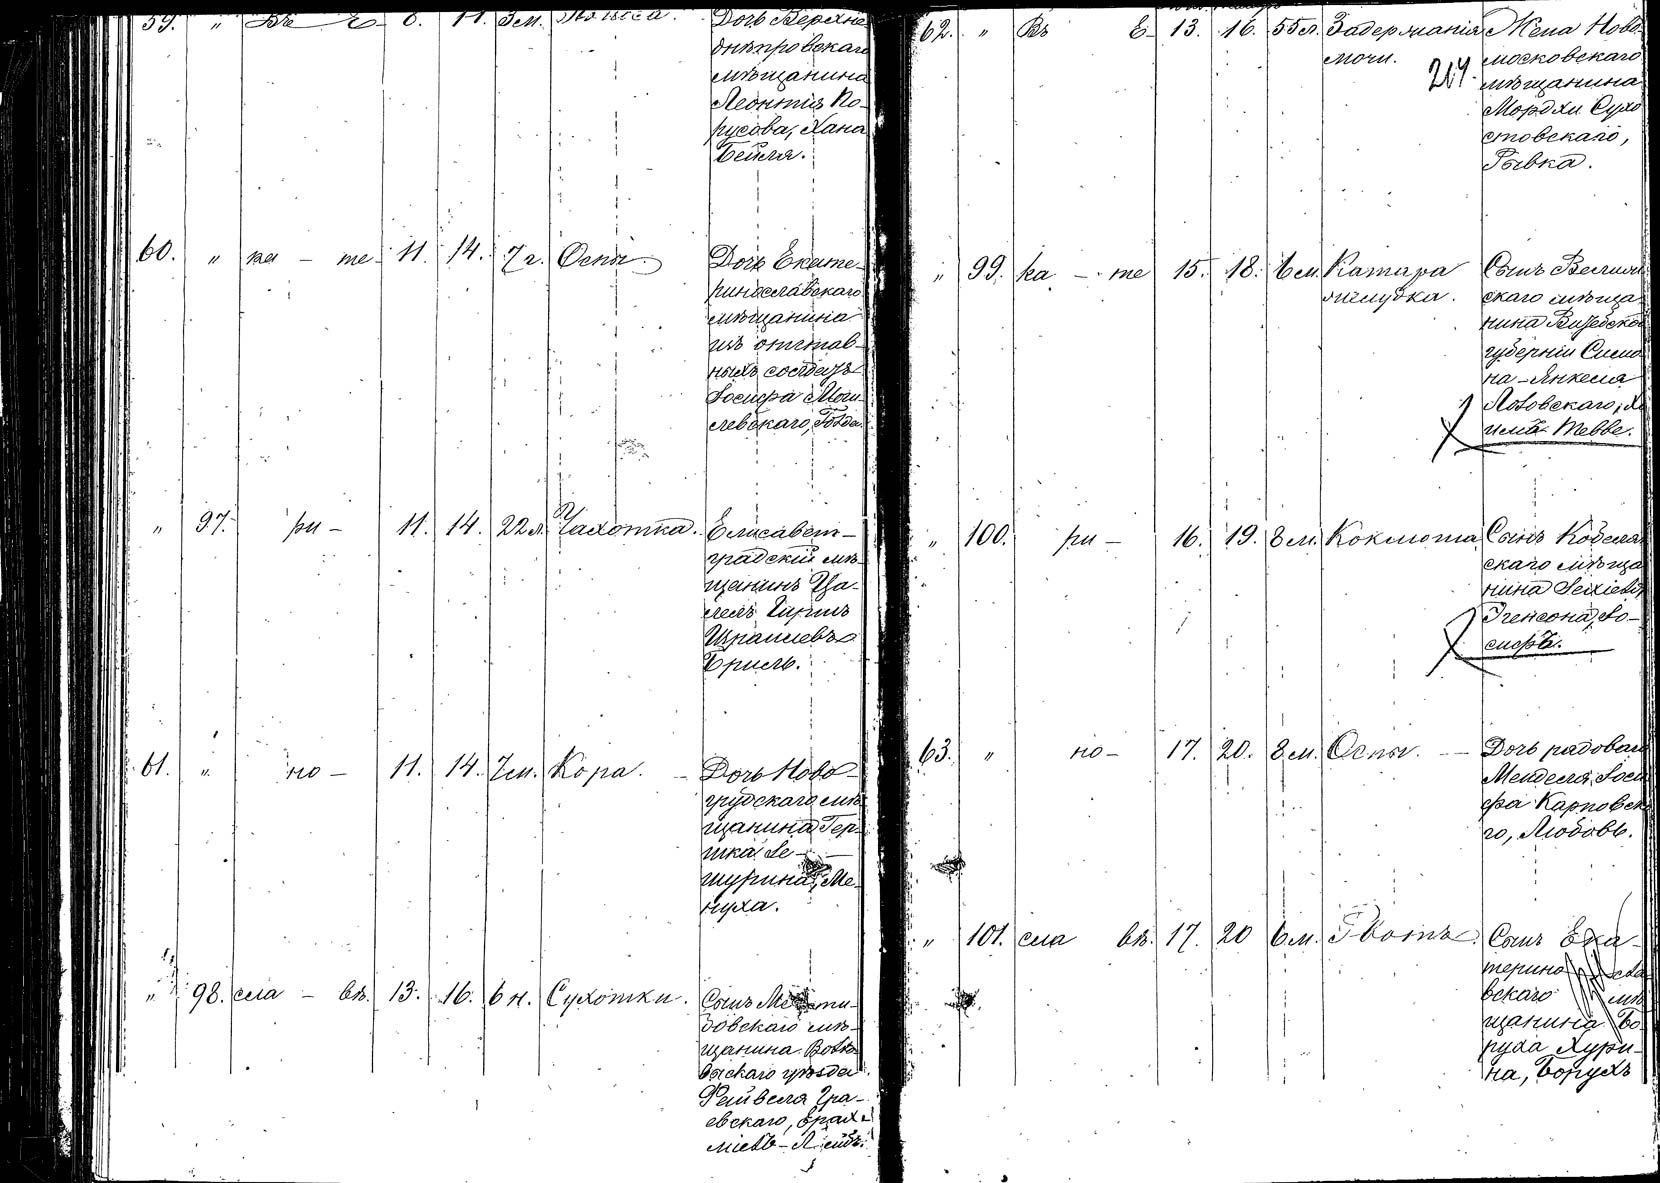 59. " Въ Е- 8. 11. 3 м. Дочь Верхне-
днѣпровскаго
мѣщанина
Леонтія По-
русова, Хана
Бейля.
60. " ка - те- 11. 14. 7 г. Оспы. Дочь Екате-
ринославскаго
мѣщанина
изъ отстав-
ныхъ солдатъ
Іосифа Моги-
левскаго, Голда.
" 97. ри - 11. 14. 22 л. Чахотка. Елисавет-
градскій мѣ-
щанинъ Ца-
лель Гиршъ
Израилевъ
Бриль.
61. " но - 11. 14. 7 м. Кора. - Дочь Ново-
грудскаго мѣ-
щанина Гер-
шка Ле-
шурина, Ме-
нуха.
" 98. сла - вѣ. 13. 16. 6 н. Сухотки. Сынъ
бовскаго мѣ-
щанина Волко-
выскаго уѣзда
Фейвеля Гра-
евскаго, Ерах-
міель-Лейбъ.
62. " Въ Е- 13. 16. 55 л. Задержанія Жена Ново-
мочи. московскаго
214. мѣщанина
Мордхи Сухо
стовскаго,
Рывка.
" 99. ка - те 15. 18. 6 м. Катара Сынъ Велиж
желудка. скаго мѣща
нина Витебской
губерніи Симо
на-Янкеля
Лозовскаго, Ха
имъ Тевве.
" 100. ри - 16. 19. 8 м. Коклюша Сынъ Кобеля
скаго мѣща
нина
Іосифъ.
63. " но- 17. 20. 8 м. Оспы. - Дочь рядоваго
Менделя Іоси
фа Карповска
го, Любовь.
" 101. сла вѣ. 17. 20 6 м. Рвотъ. Сынъ Ека-
терино сла-
вскаго мѣ
щанина Бо-
руха Хури-
на, Борухъ